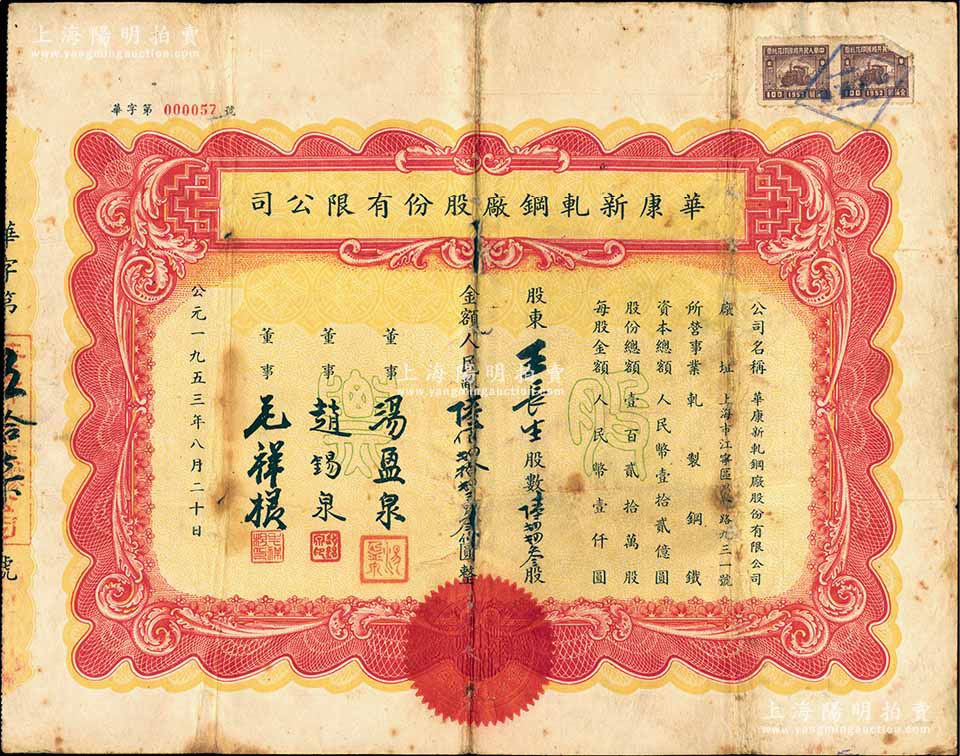 上海陽明拍賣
www.yangmingauction.com
華字第 000057 號
華康新軋鋼廠股份有限公司
公司名稱 華康新軋鋼廠股份有限公司
廠址 上海市江寧區 路九三一號
所營事業 軋製鋼鐵
資本總額 人民幣壹拾貳億圓
股份總額 壹百貳拾萬股
每股金額 人民幣壹仟圓
股東 王長生 股數 陸 股
金額人民幣陸 圓整
董事 湯盈泉
董事 趙錫泉
董事 毛祥根
公元一九五三年八月二十日
股票
華字第 伍拾柒 號
中華人民共和國印花稅票
100 1952
中華人民共和國印花稅票
100 1952
上海陽明拍賣
www.yangmingauction.com
上海陽明拍賣
www.yangmingauction.com